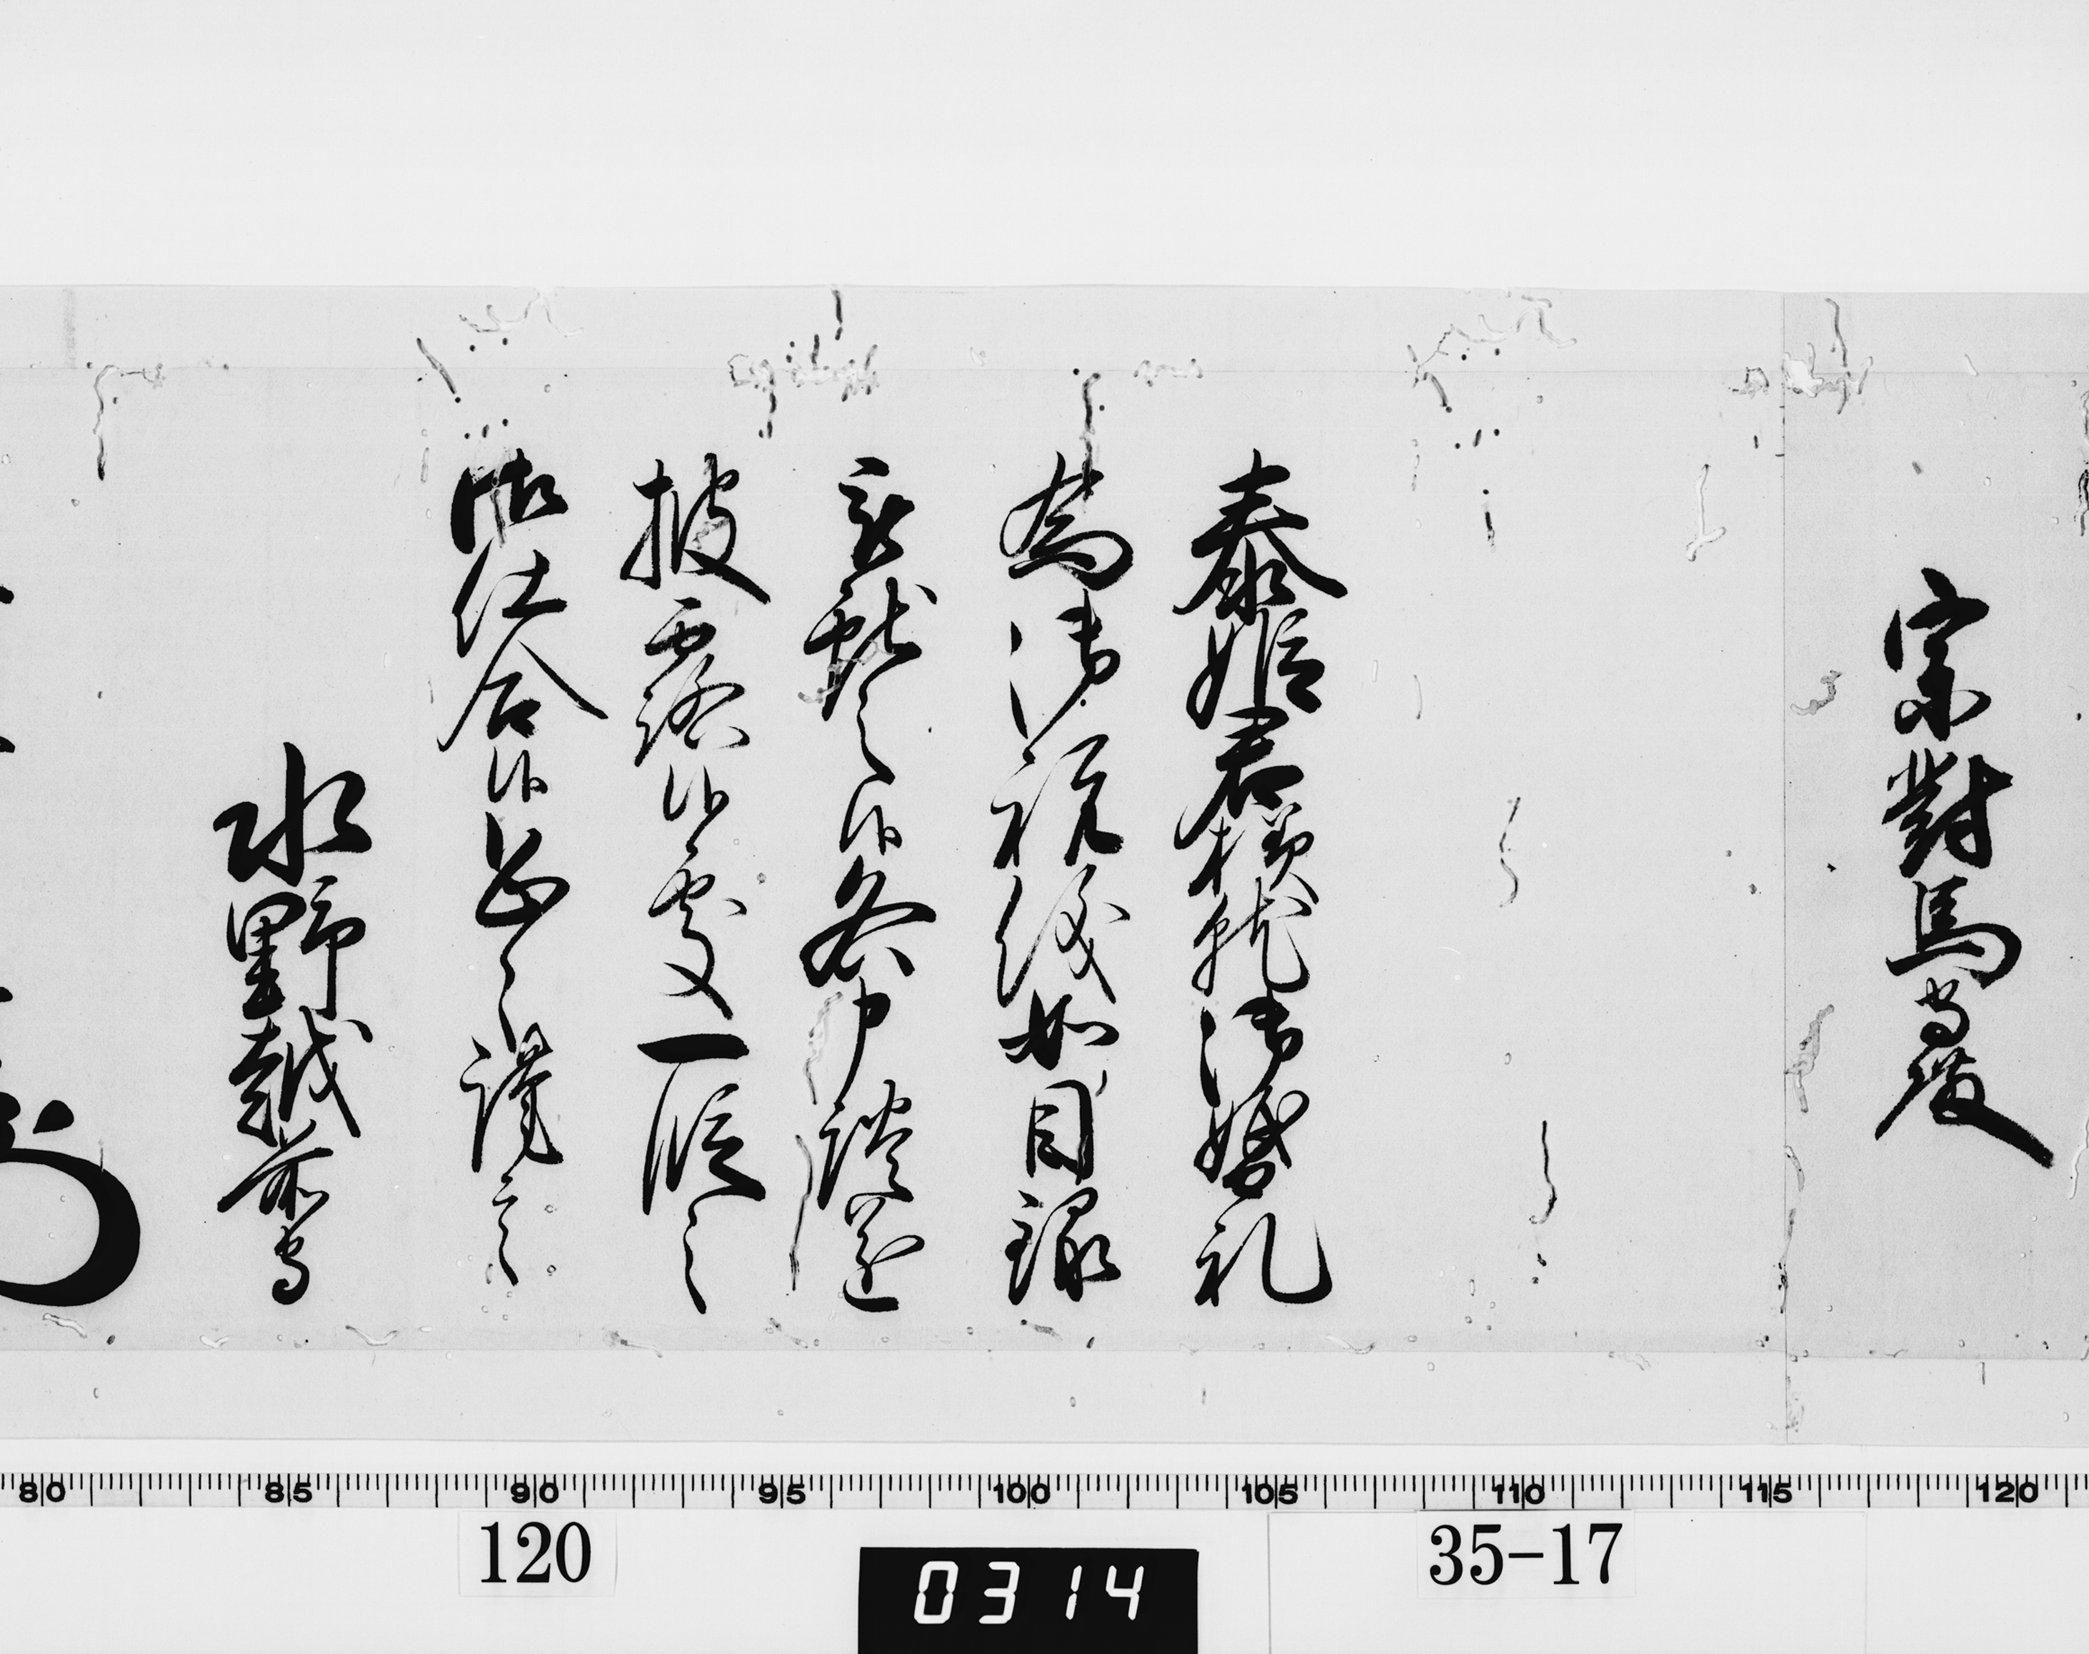 宗對馬守殿
泰姫君様就御婚礼
為御祝儀如目録
被獻之候各申談遂
披露候處一段之
御仕合候恐々謹言
水野越前守
80 85 90 95 100 105 110 115 120
120
0314
35-17